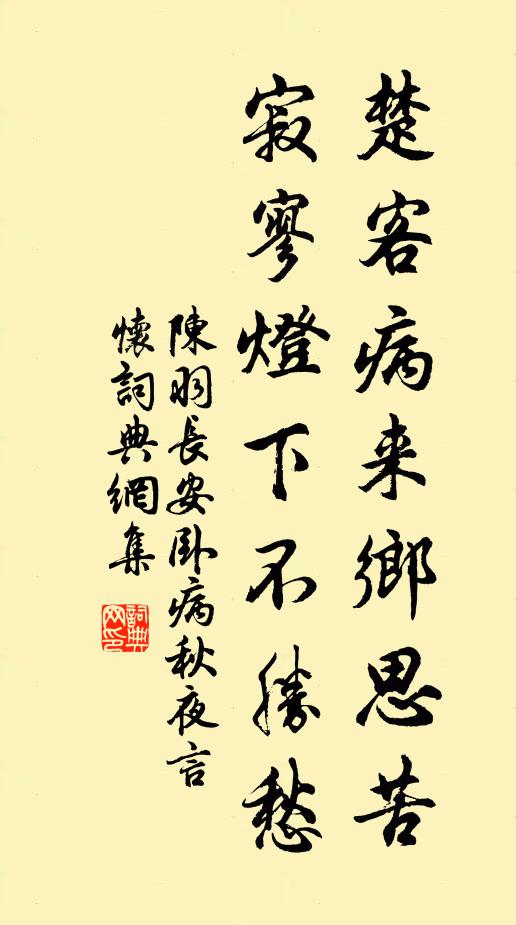 楚客病来鄉思苦
寂寥燈下不勝愁
陳羽長安卧病秋夜言
懷詞典網集
詞典
网印